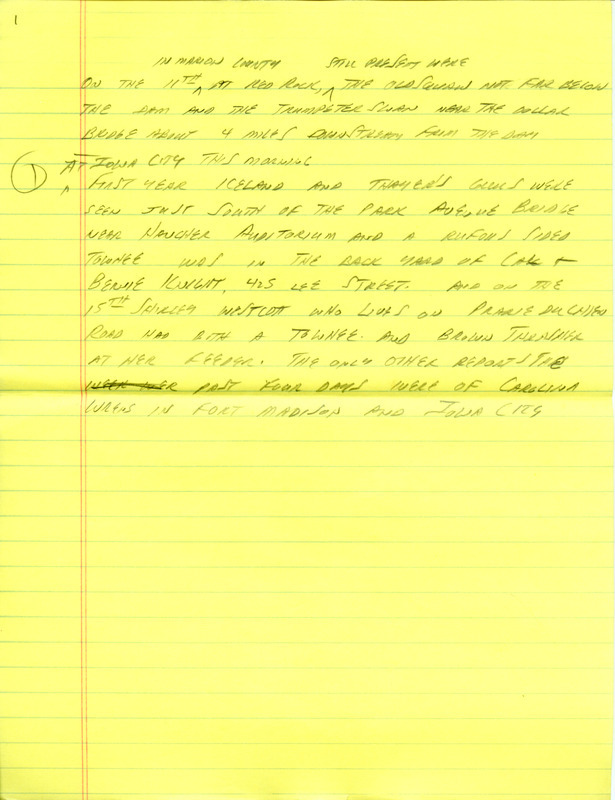 1
IN MARION COUNTY STILL PRESENT WERE
ON THE 11TH ^ AT RED ROCK, ^ THE OLDSQUAW NOT FAR BELOW
THE DAM AND THE TRUMPETER SWAN NEAR THE DOLLAR
BRIDGE ABOUT 4 MILES DOWNSTREAM FROM THE DAM
1 AT IOWA CITY THIS MORNING
^ FIRST YEAR ICELAND AND THAYER'S GULLS WERE
SEEN JUST SOUTH OF THE PARK AVENUE BRIDGE
NEAR HANCHER AUDITORIUM AND A RUFOUS SIDED
TOWHEE WAS IN THE BACK YARD OF CAL +
BERNIE KNIGHT, 425 LEE STREET. AND ON THE
15TH SHIRLEY WESTCOTT WHO LIVES ON PRAIRIE DU CHIEN
ROAD HAD BOTH A TOWHEE AND BROWN THRASHER
AT HER FEEDER. THE ONLY OTHER REPORTS THE
PAST FOUR DAYS WERE OF CAROLINA
WRENS IN FORT MADISON AND IOWA CITY